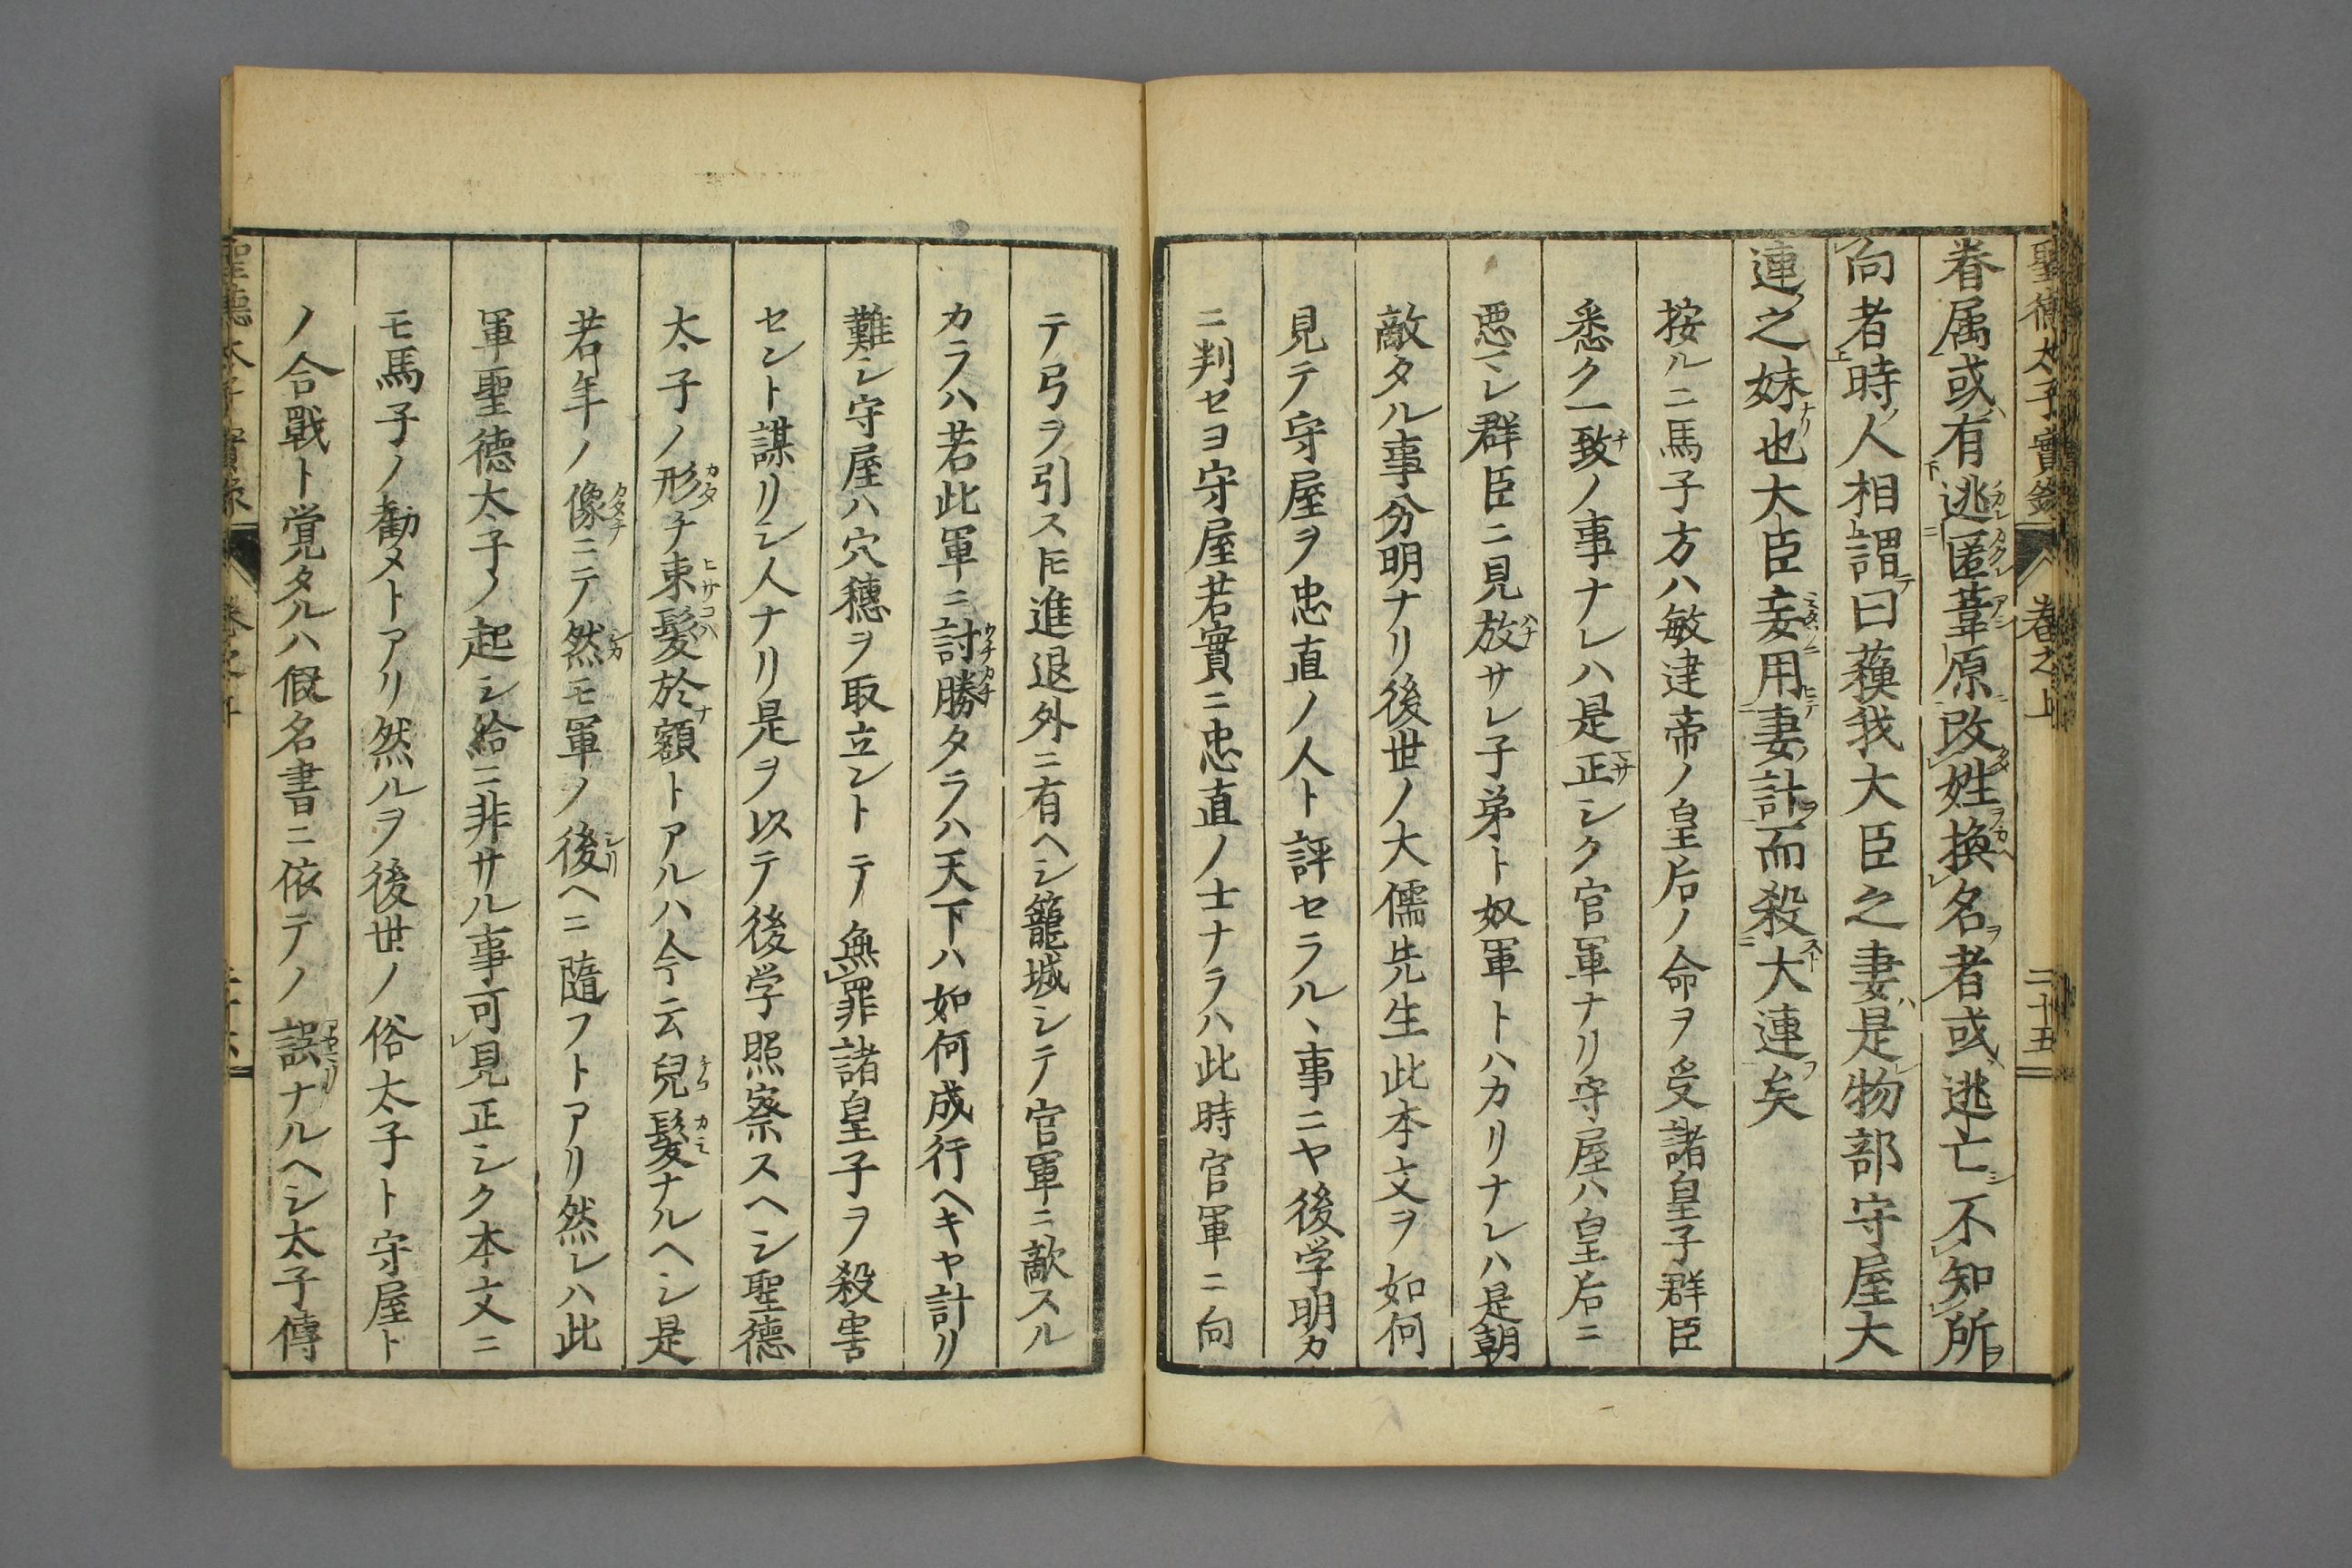 聖德太子實錄 卷之上 二十五
眷属或有逃匿葦原改姓換名者或逃亡不知所
向者時人相謂曰蘓我大臣之妻是物部守屋大
連之妹也大臣妄用妻計而殺大連矣
按ルニ馬子方ハ敏達帝ノ皇后ノ命ヲ受諸皇子群臣
悉ク一致ノ事ナレハ是正シク官軍ナリ守屋ハ皇后ニ
悪マレ群臣ニ見放サレ子弟ト奴軍トハカリナレハ是朝
敵タル事分明ナリ後世ノ大儒先生此本文ヲ如何
見テ守屋ヲ忠直ノ人ト評セラルヽ事ニヤ後学明カ
ニ判セヨ守屋若實ニ忠直ノ士ナラハ此時官軍ニ向
テ弓ヲ引ス𪜈進退外ニ有ヘシ籠城シテ官軍ニ敵スル
カラハ若此軍ニ討勝タラハ天下ハ如何成行ヘキヤ計リ
難シ守屋ハ穴穗ヲ取立ントテノ無罪諸皇子ヲ殺害
セント謀リシ人ナリ是ヲ以テ後学照察スヘシ聖德
太子ノ形チ束髮於額トアルハ今云兒髮ナルヘシ是
若年ノ像ニテ然モ軍ノ後ヘニ隨フトアリ然レハ此
軍聖德太子ノ起シ給ニ非サル事可見正シク本文ニ
モ馬子ノ勸メトアリ然ルヲ後世ノ俗太子ト守屋ト
ノ合戰ト覚タルハ假名書ニ依テノ誤ナルヘシ太子傳